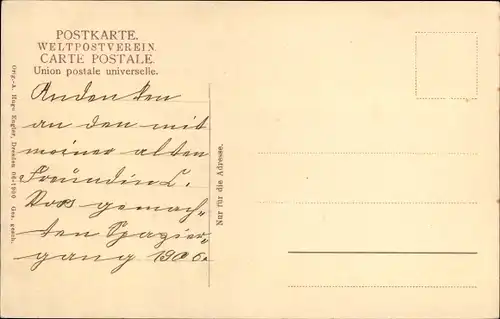 POSTKARTE.
WELTPOSTVEREIN.
CARTE POSTALE.
Union postale universelle.
Andenken
an den mit
meiner alten
Freundin L.
gemach-
ten Spazier-
gang 1906.
Nur für die Adresse.
Orig.-A. Hugo Engler, Dresden 06-1900 Ges. gesch.